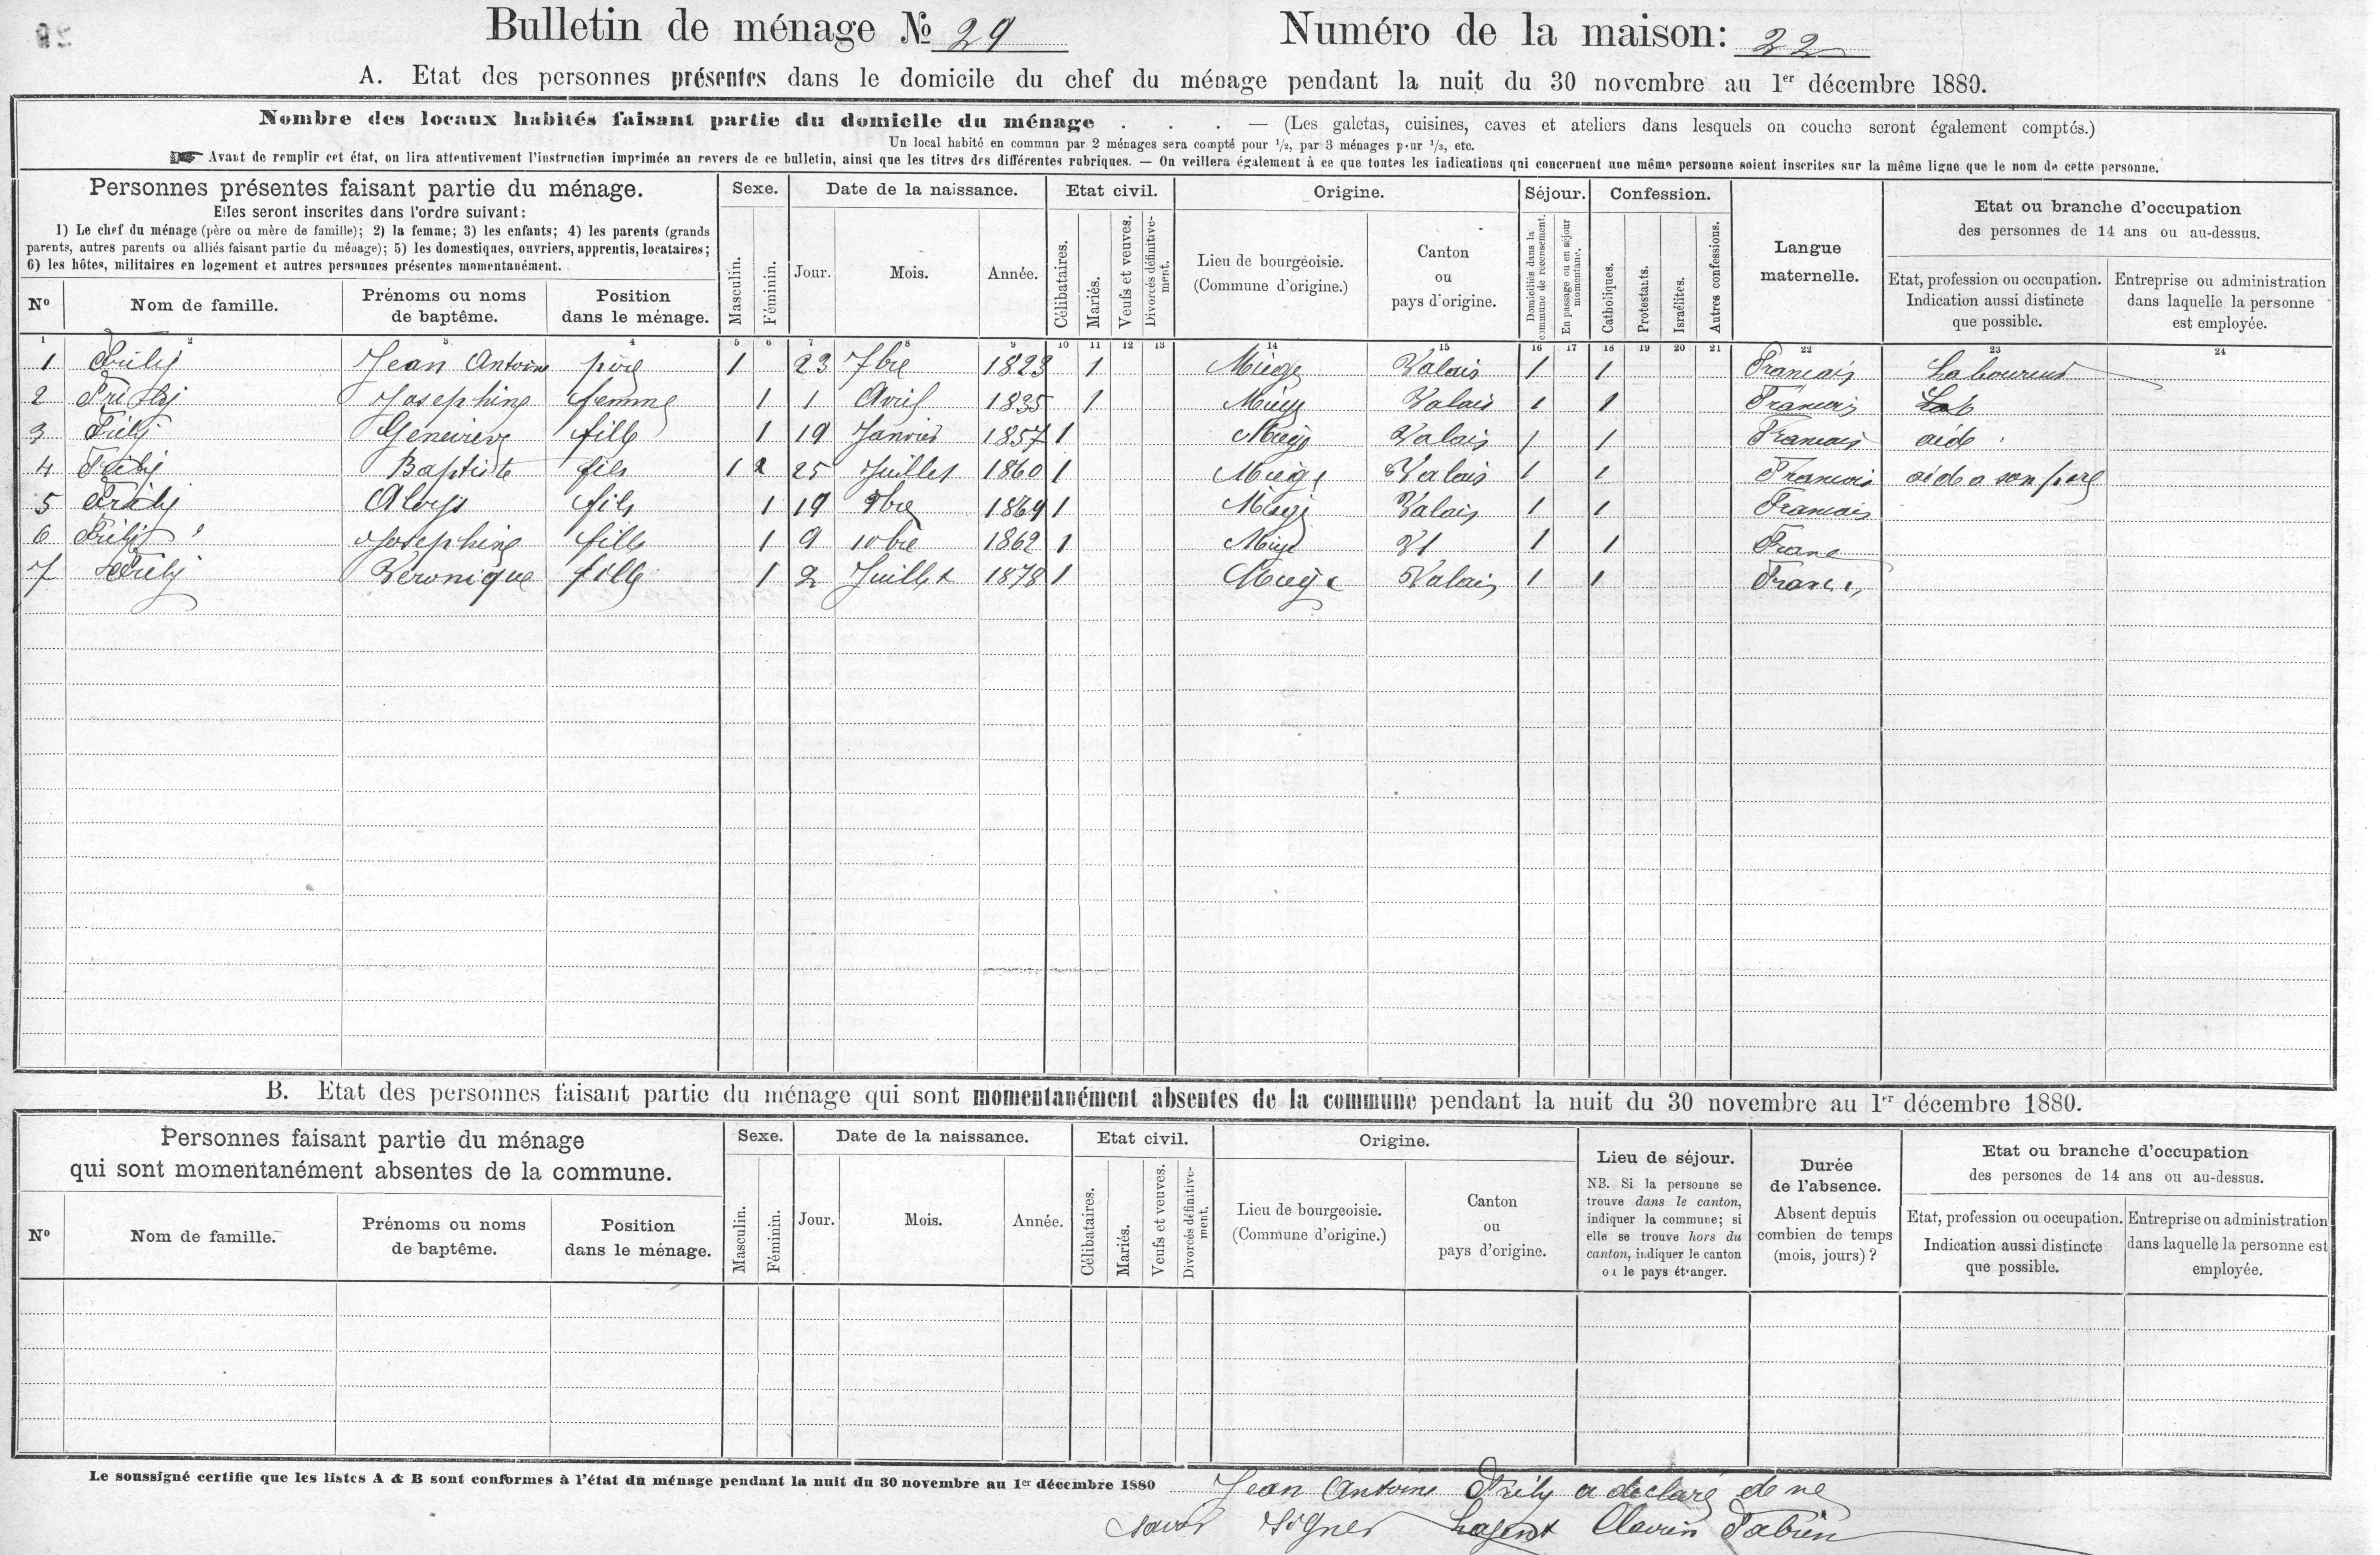 Bulletin de ménage № 29 Numéro de la maison: 22
A. Etat des personnes présentes dans le domicile du chef du ménage pendant la nuit du 30 novembre au 1er décembre 1880.
Nombre des locaux habités faisant partie du domicile du ménage . . . — (Les galetas, cuisines, caves et ateliers dans lesquels on couche seront également comptés.)
Un local habité en commun par 2 ménages sera compté pour 1/2, par 3 ménages pour 1/3, etc.
Avant de remplir cet état, on lira attentivement l'instruction imprimée au revers de ce bulletin, ainsi que les titres des différentes rubriques. — On veillera également à ce que toutes les indications qui concernent une même personne soient inscrites sur la même ligne que le nom de cette personne.
Personnes présentes faisant partie du ménage. Sexe. Date de la naissance. Etat civil. Origine. Séjour. Confession. Langue maternelle. Etat ou branche d'occupation
Elles seront inscrites dans l'ordre suivant: des personnes de 14 ans ou au-dessus.
1) Le chef du ménage (père ou mère de famille); 2) la femme; 3) les enfants; 4) les parents (grands
parents, autres parents ou alliés faisant partie du ménage); 5) les domestiques, ouvriers, apprentis, locataires;
6) les hôtes, militaires en logement et autres personnes présentes momentanément.
No Nom de famille. Prénoms ou noms de baptême. Position dans le ménage. Masculin. Féminin. Jour. Mois. Année. Célibataires. Mariés. Veufs et veuves. Divorcés définitivement. Lieu de bourgeoisie. (Commune d'origine.) Canton ou pays d'origine. Domiciliés dans la commune de recensement. En passage ou en séjour momentané. Catholiques. Protestants. Israélites. Autres confessions. Etat, profession ou occupation. Indication aussi distincte que possible. Entreprise ou administration dans laquelle la personne est employée.
1 2 3 4 5 6 7 8 9 10 11 12 13 14 15 16 17 18 19 20 21 22 23 24
1 Frily Jean Antoine père 1 23 7bre 1823 1 Miège Valais 1 1 Francais Laboureur
2 Frily Josephine femme 1 1 Avril 1835 1 Miège Valais 1 1 Francais Lab
3 Frily Genevieve fille 1 19 Janvier 1857 1 Miège Valais 1 1 Francais aide
4 Frily Baptiste fils 1 2 25 Juillet 1860 1 Miège Valais 1 1 Francais aide a son père
5 Frily Aloys fils 1 19 9bre 1869 1 Miège Valais 1 1 Francais
6 Frily Josephine fille 1 9 10bre 1862 1 Miège Vl 1 1 Franc
7 Frily Veronique fille 1 2 Juillet 1878 1 Miège Valais 1 1 Franc
B. Etat des personnes faisant partie du ménage qui sont momentanément absentes de la commune pendant la nuit du 30 novembre au 1er décembre 1880.
Personnes faisant partie du ménage Sexe. Date de la naissance. Etat civil. Origine. Lieu de séjour. Durée de l'absence. Etat ou branche d'occupation
qui sont momentanément absentes de la commune. des persones de 14 ans ou au-dessus.
No Nom de famille. Prénoms ou noms de baptême. Position dans le ménage. Masculin. Féminin. Jour. Mois. Année. Célibataires. Mariés. Veufs et veuves. Divorcés définitivement. Lieu de bourgeoisie. (Commune d'origine.) Canton ou pays d'origine. NB. Si la personne se trouve dans le canton, indiquer la commune; si elle se trouve hors du canton, indiquer le canton ou le pays étranger. Absent depuis combien de temps (mois, jours)? Etat, profession ou occupation. Indication aussi distincte que possible. Entreprise ou administration dans laquelle la personne est employée.
Le soussigné certifie que les listes A & B sont conformes à l'état du ménage pendant la nuit du 30 novembre au 1er décembre 1880 Jean Antoine Frily a declaré de ne
savoir signer Lagent Clavien Fabien